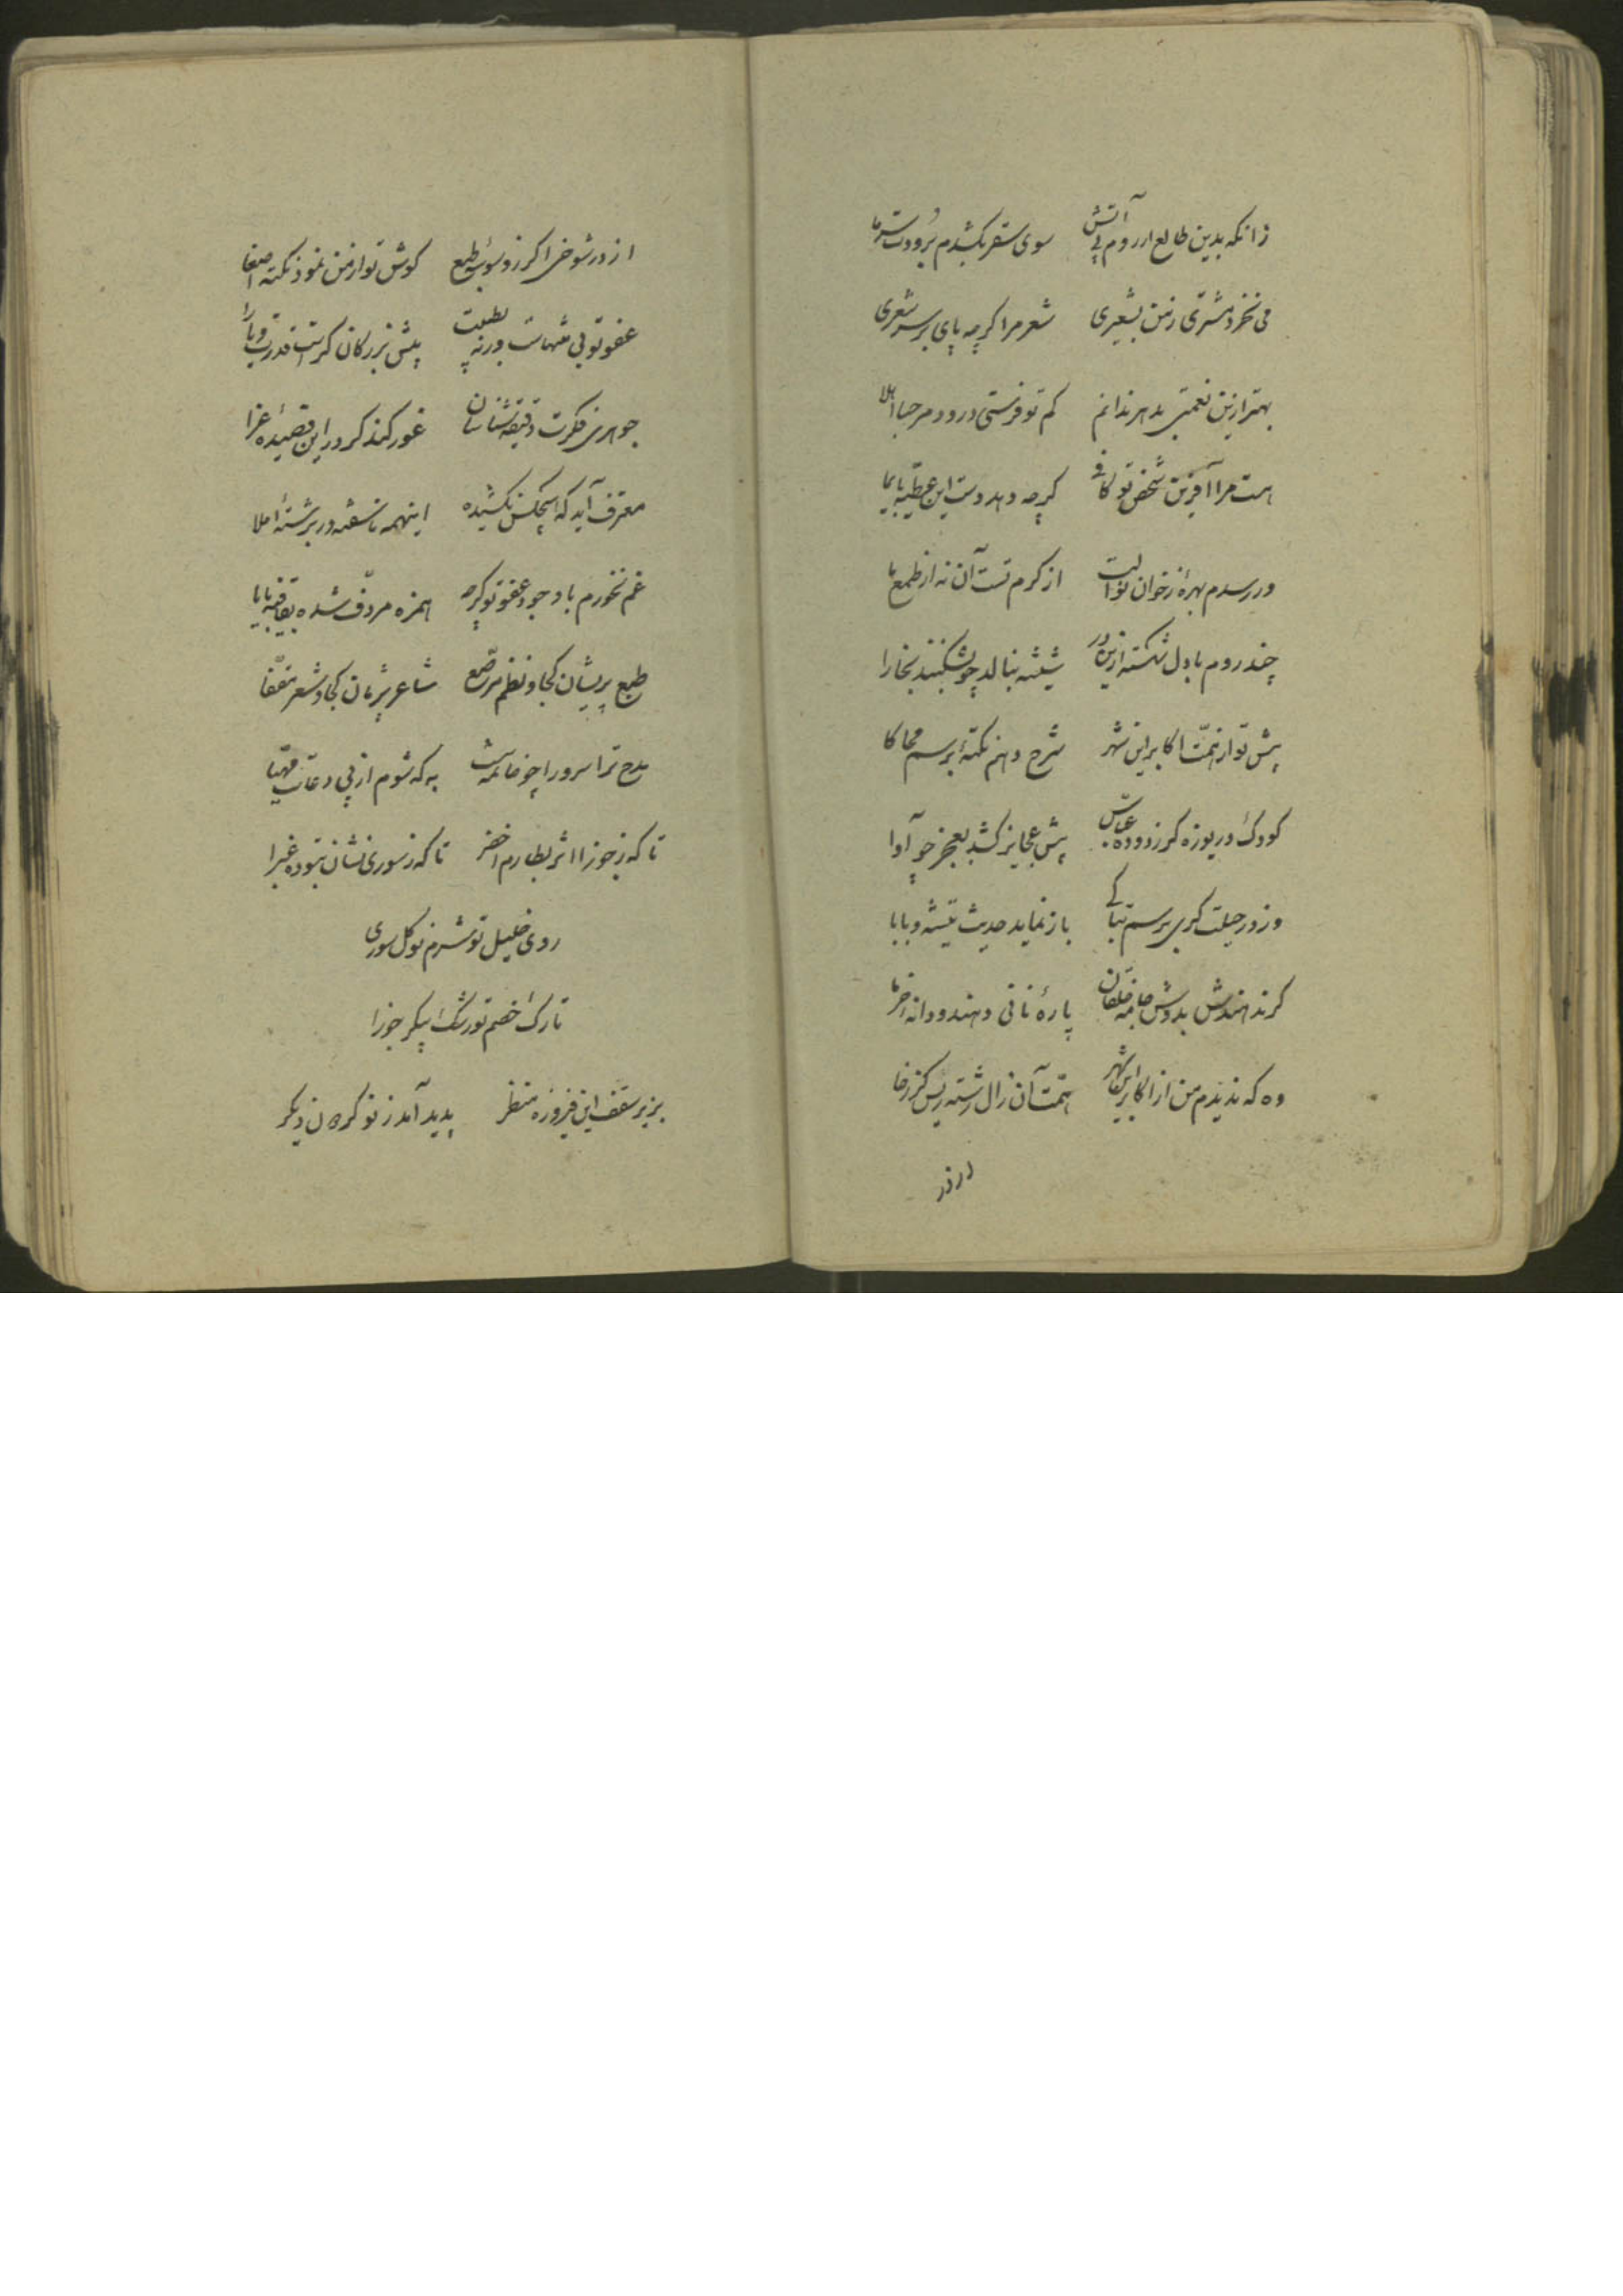 زانکه بدین طالع ار روم پی آتش سوی سقر بکشدم برودت سرما
می نخرد مشتری ز من بشعیری شعر مرا گرچه پای بر سر شعری
بهتر ازین نعمتی بدهر ندانم کم تو فرستی درود و مرحبا اهلا
هست مرا آفرین شخص تو کافی گرچه دهد دست این عطیه بایما
ور رسدم بهرهٔ ز خوان نوالت از کرم تست آن نه از طمع ما
چند روم با دل شکسته ازین در شیشه بنالد چو بشکنند بخارا
پیش تو از همّت اکابر این شهر شرح دهم نکتهٔ برسم محاکا
کودک دریوزه گر ز دودهٔ عبّاس پیش عجایز کشد بعجز چو آوا
وز در حیلت گری برسم تباکی باز نماید حدیث تیشه و بابا
گر ندهندش بدوش جامه خلقان پارهٔ نانی دهند و دانه خرما
وه که ندیدم من از اکابر این شهر همّت آن زال رشته ریس کزرخا
از در
از در شوخی اگر ز وسوسهٔ طبع گوش تو از من نمود نکته اصغا
عفو تو بی منتهاست ورنه پیش بزرگان کراست قدرت و یارا
جوهری فکرت دقیقه شناسان غور کند گر در این قصیدهٔ غرا
معترف آید که هیچکس نکشیده اینهمه ناسفته در برشتهٔ املا
غم نخورم با وجود عفو تو گرچه همزه مردّف شده بقافیه یابا
طبع پریشان کجا و نظم مرصّع شاعر پژمان کجا و شعر مقفّا
مدح ترا سرورا چو خاتمه به که شوم از پی دعات مهیّا
تا که ز جوزا اثر بطارم اخضر تا که ز سوری نشان بتوده غبرا
روی خلیل تو شرم نو گل سوری
تارک خصم تو رشک پیکر جوزا
بزیر سقف این فیروزه منظر پدید آمد ز نو کرمان دیگر